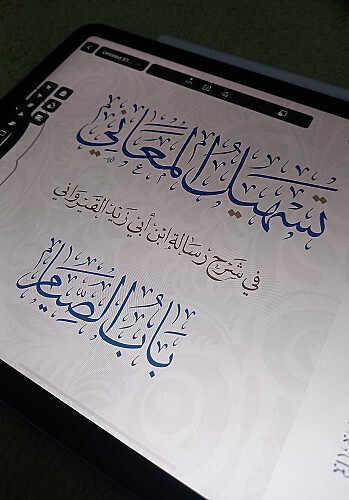 Untitled 51...
تسهيل المعاني
في شرح رسالة ابن أبي زيد القيرواني
باب الصيام